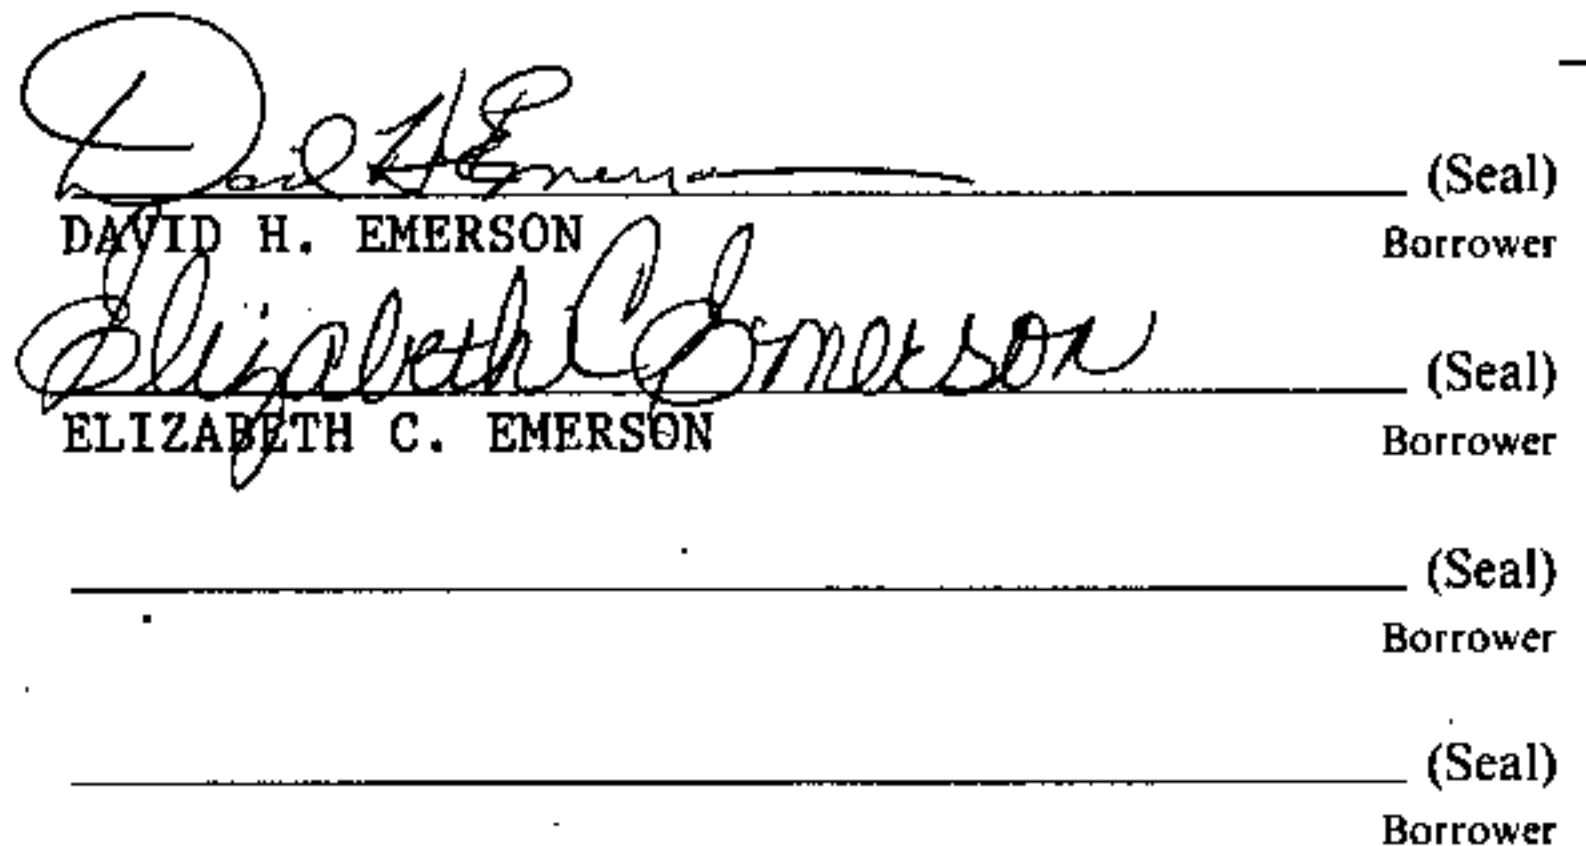 David H Emerson (Seal)
DAVID H. EMERSON Borrower
Elizabeth C Emerson (Seal)
ELIZABETH C. EMERSON Borrower
(Seal)
Borrower
(Seal)
Borrower